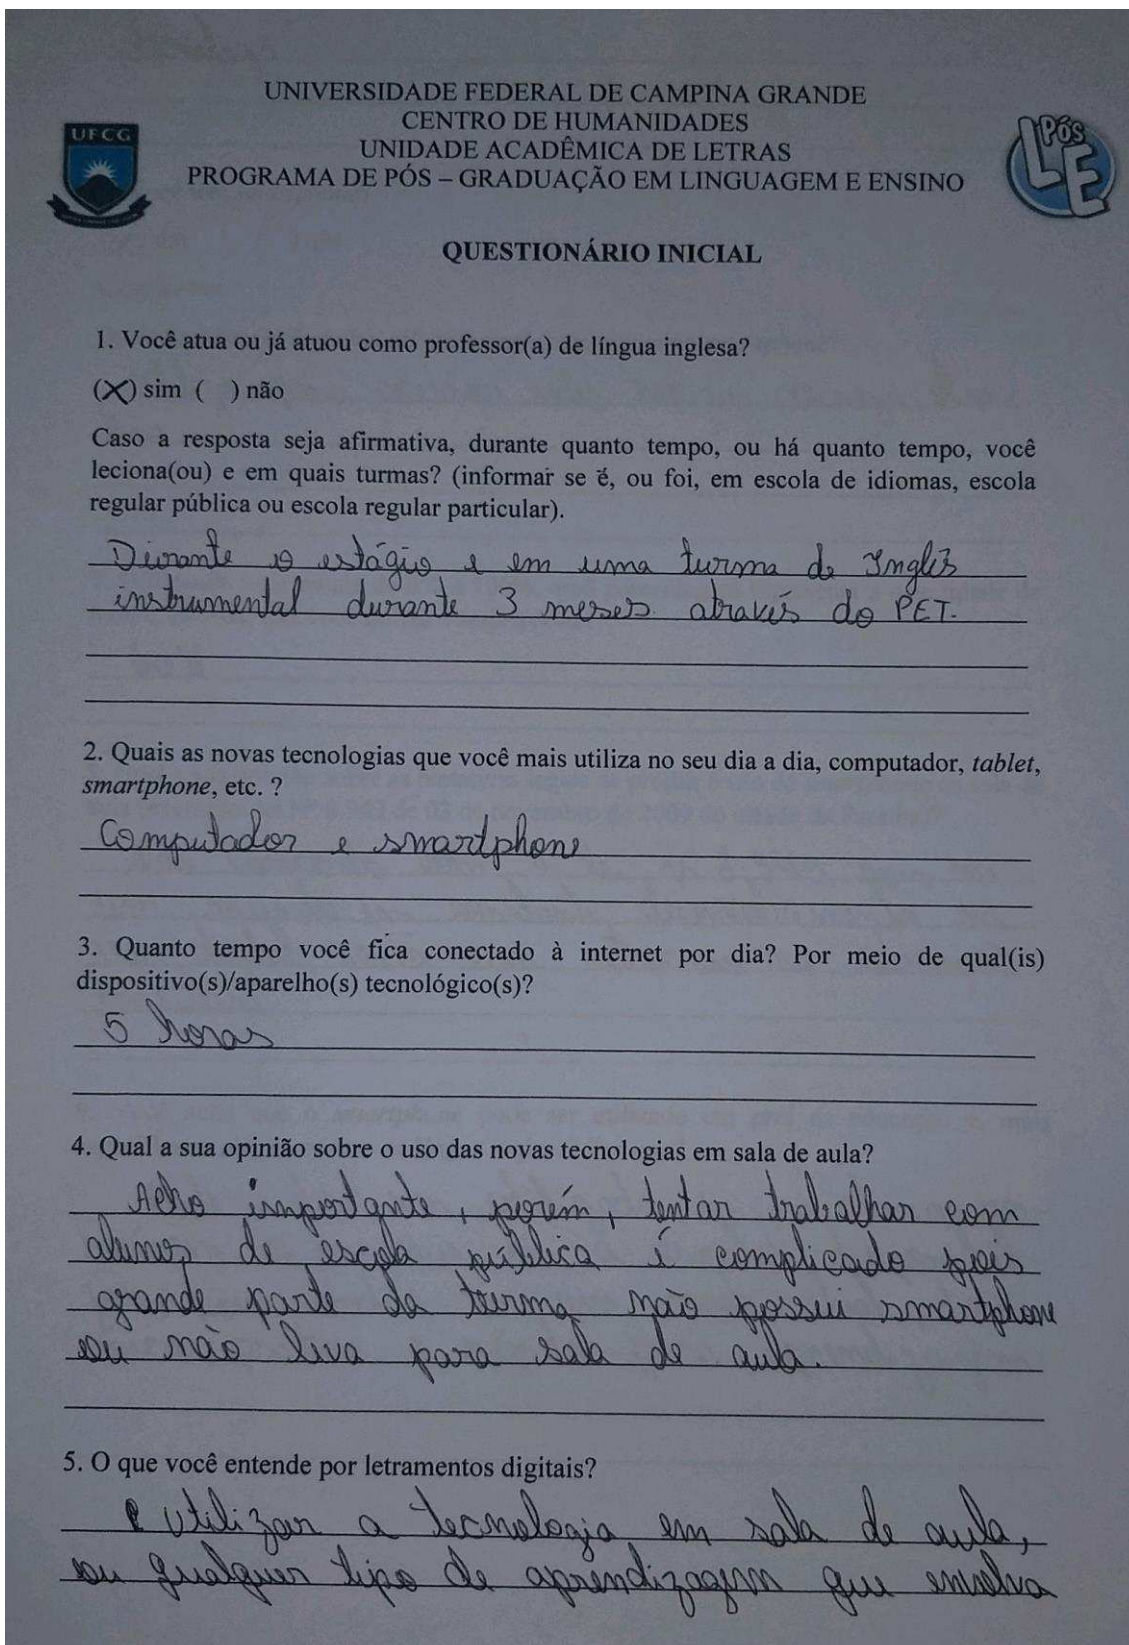 UNIVERSIDADE FEDERAL DE CAMPINA GRANDE
CENTRO DE HUMANIDADES
UNIDADE ACADÊMICA DE LETRAS
PROGRAMA DE PÓS – GRADUAÇÃO EM LINGUAGEM E ENSINO
UFCG
Pós
LE
QUESTIONÁRIO INICIAL
1. Você atua ou já atuou como professor(a) de língua inglesa?
(X) sim ( ) não
Caso a resposta seja afirmativa, durante quanto tempo, ou há quanto tempo, você
leciona(ou) e em quais turmas? (informar se é, ou foi, em escola de idiomas, escola
regular pública ou escola regular particular).
Durante o estágio e em uma turma de Inglês
instrumental durante 3 meses através do PET.
2. Quais as novas tecnologias que você mais utiliza no seu dia a dia, computador, tablet,
smartphone, etc. ?
Computador e smartphone
3. Quanto tempo você fica conectado à internet por dia? Por meio de qual(is)
dispositivo(s)/aparelho(s) tecnológico(s)?
5 horas
4. Qual a sua opinião sobre o uso das novas tecnologias em sala de aula?
Acho importante, porém, tentar trabalhar com
alunos de escola pública é complicado pois
grande parte da turma não possui smartphone
ou não leva para sala de aula.
5. O que você entende por letramentos digitais?
é utilizar a tecnologia em sala de aula,
ou qualquer tipo de aprendizagem que envolva